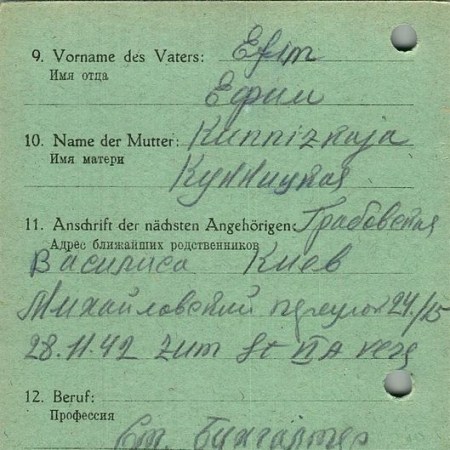 9. Vorname des Vaters: Efim
Имя отца
Ефим
10. Name der Mutter: Kunnizkaja
Имя матери
Кунницкая
11. Anschrift der nächsten Angehörigen: Грабовская
Адрес ближайших родственников
Василиса Киев
Михайловский переулок 24/25
28.11.42 zum St VI A verg
12. Beruf:
Профессия
Ст. бухгалтер